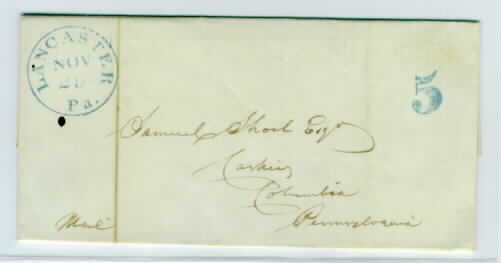 LANCASTER
NOV
Pa.
5
Samuel Shoch Esqr
Cashier
Columbia
Pennsylvania
Mail